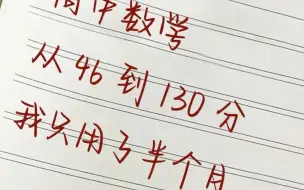 高中数学
从46到130分
我只用了半个月